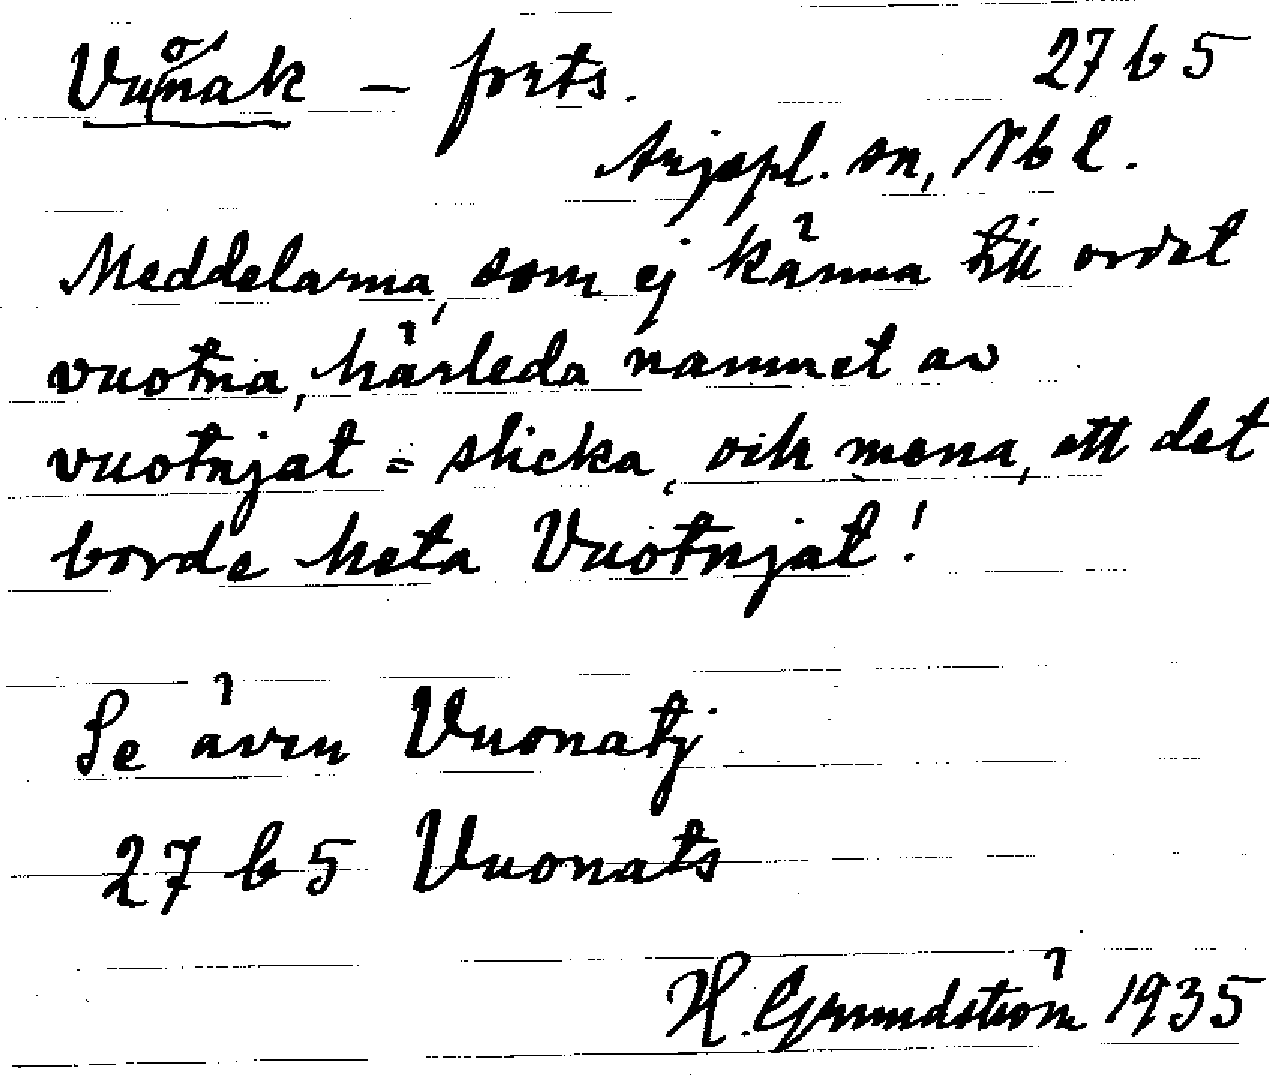 Vuonak – forts. 27 b 5
Arjepl. sn, Nbl.
Meddelarna, som ej känna till ordet
vuotna, härleda namnet av
vuotnjat = slicka, och mena, att det
borde heta Vuotnjat!
Se även Vuonatj
27 b 5 Vuonats
H. Grundström 1935